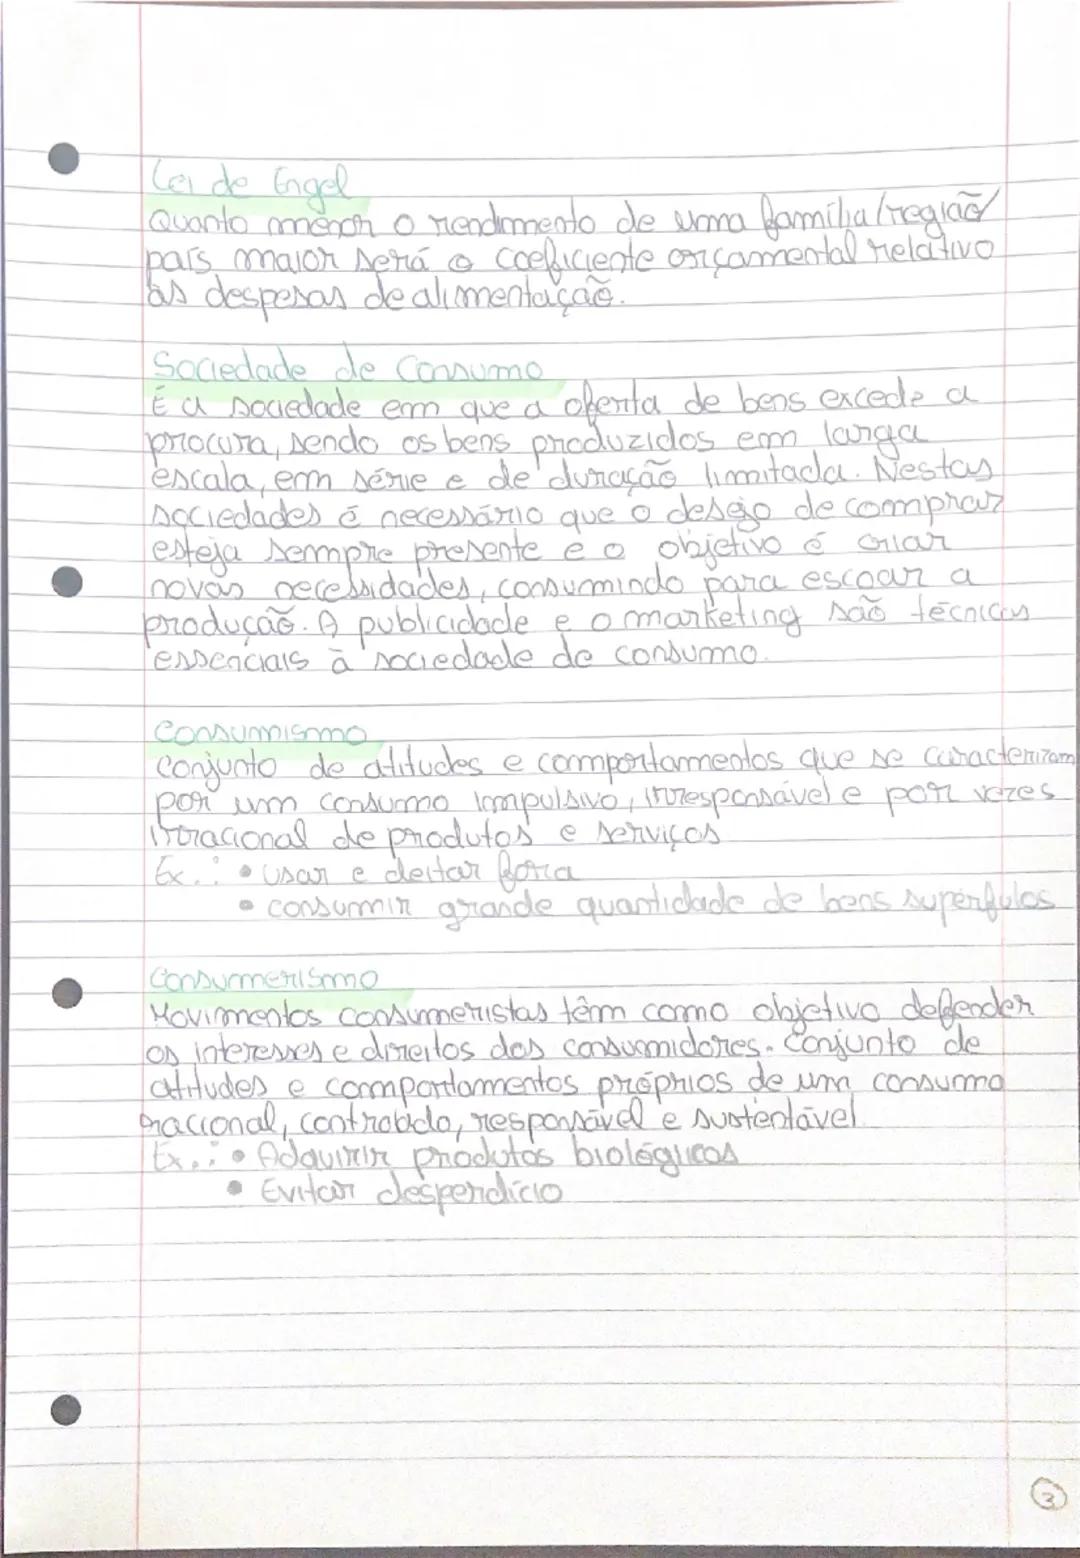 Lei de Engel
Quanto menor o rendimento de uma família/região/
país maior será o coeficiente orçamental relativo
às despesas de alimentação.
Sociedade de Consumo
É a sociedade em que a oferta de bens excede a
procura, sendo os bens produzidos em larga
escala, em série e de duração limitada. Nestas
sociedades é necessário que o desejo de comprar
esteja sempre presente e o objetivo é criar
novas necessidades, consumindo para escoar a
produção. A publicidade e o marketing são técnicas
essenciais à sociedade de consumo.
Consumismo
Conjunto de atitudes e comportamentos que se caracterizam
por um consumo impulsivo, irresponsável e por vezes
irracional de produtos e serviços
Ex.: • usar e deitar fora
• consumir grande quantidade de bens supérfulos
Consumerismo
Movimentos consumeristas têm como objetivo defender
os interesses e direitos dos consumidores. Conjunto de
atitudes e comportamentos próprios de um consumo
racional, controlado, responsável e sustentável
Ex.: • Adquirir produtos biológicos
• Evitar desperdício
3